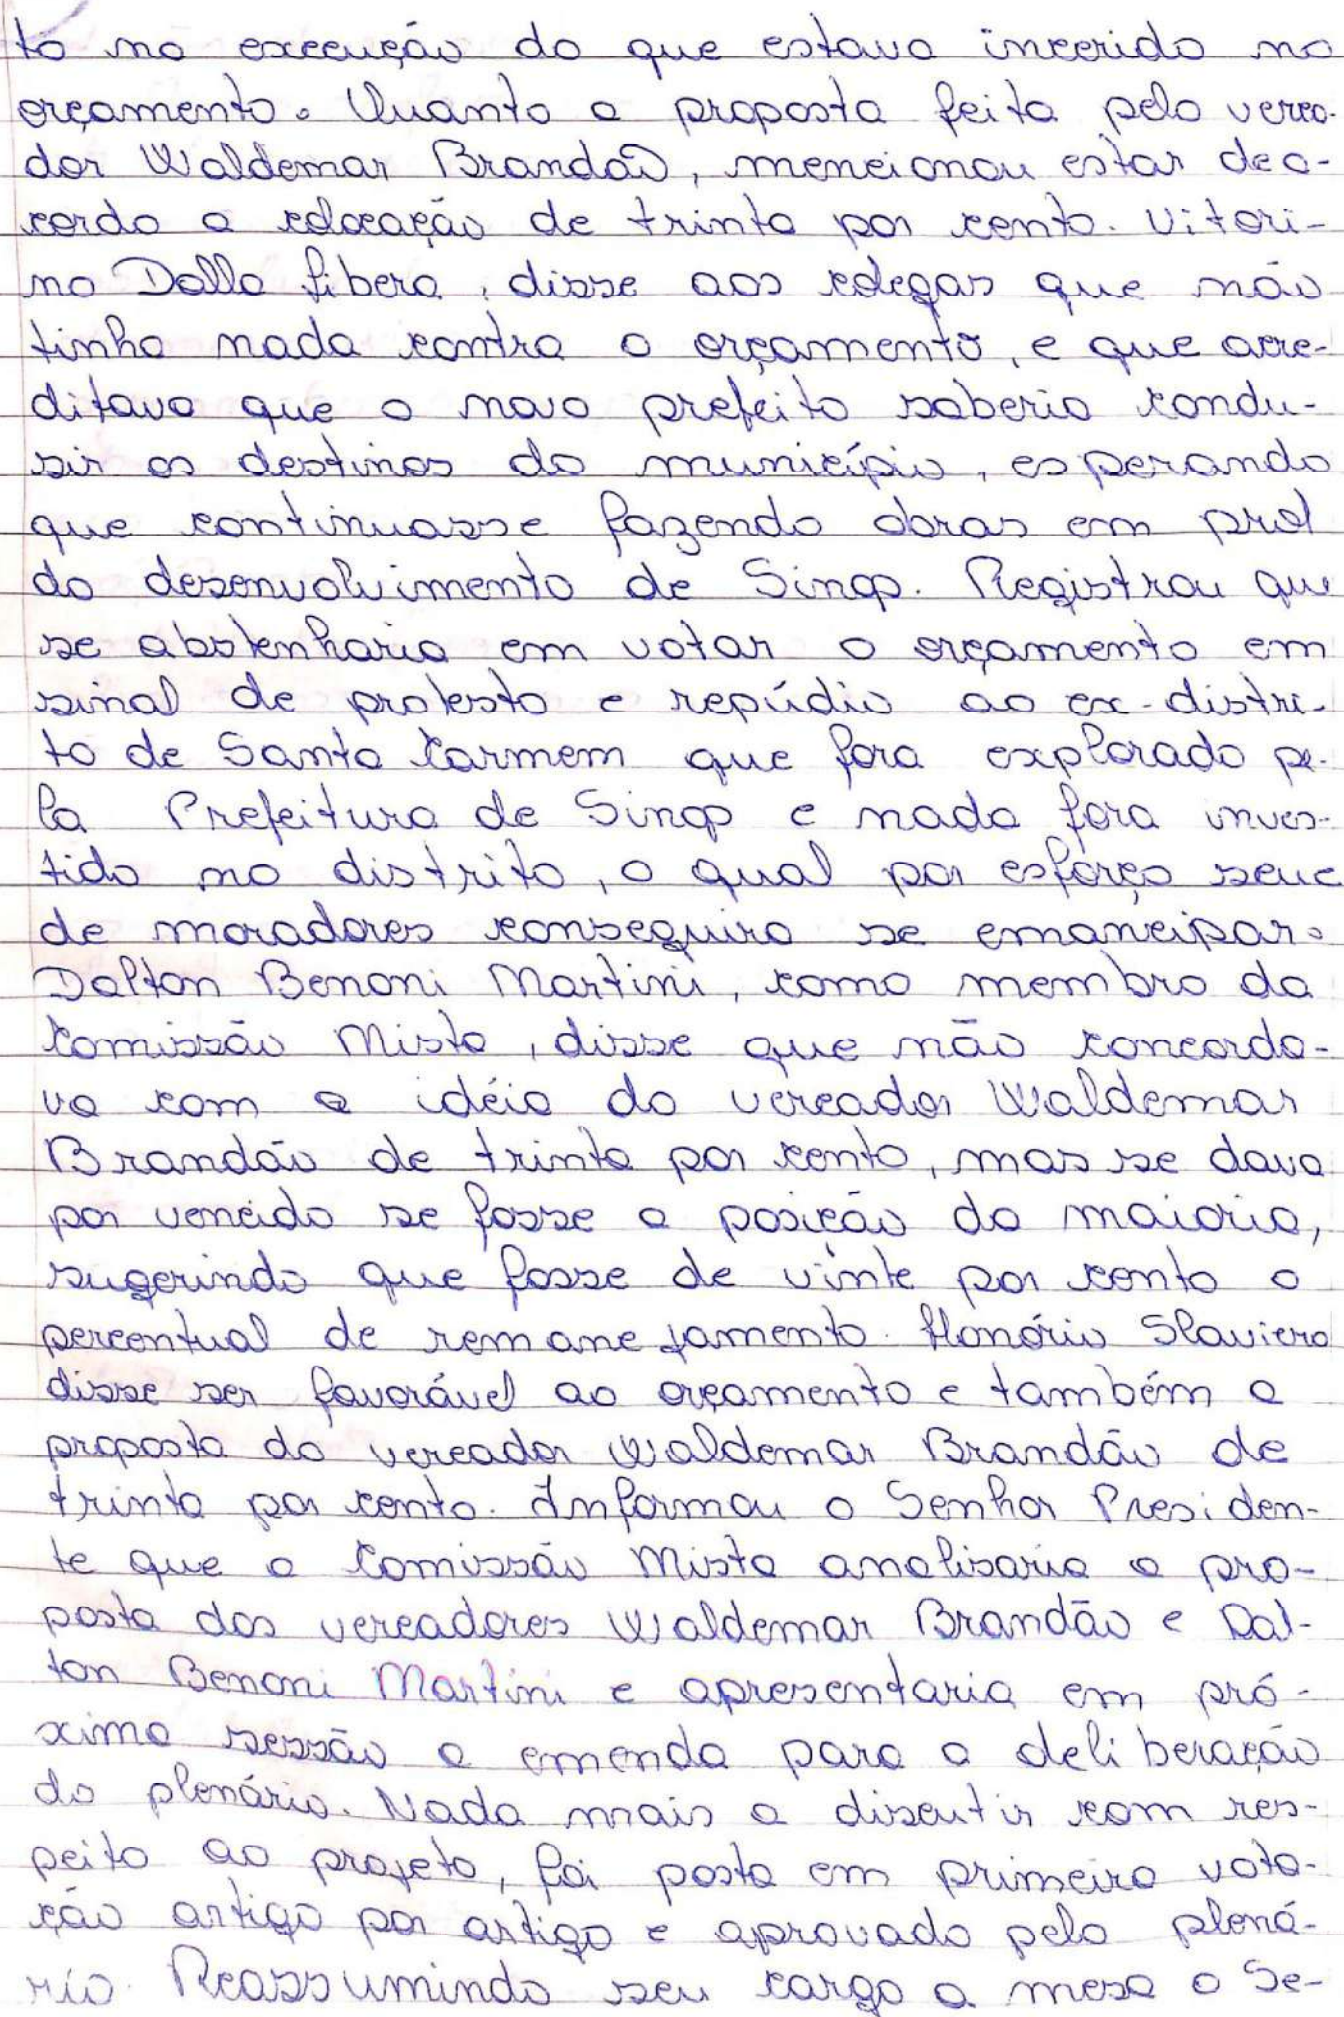 to na execução do que estava incerido no
orçamento. Quanto a proposta feita pelo verea-
dor Waldemar Brandão, mencionou estar de a-
cordo a colocação de trinta por cento. Vitori-
no Dalla Libera, disse aos colegas que não
tinha nada contra o orçamento, e que acre-
ditava que o novo prefeito saberia condu-
sir os destinos do município, esperando
que continuasse fazendo obras em prol
do desenvolvimento de Sinop. Registrou que
se abstenharia em votar o orçamento em
sinal de protesto e repúdio ao ex-distri-
to de Santa Carmem que fora explorado pe-
la Prefeitura de Sinop e nada fora inves-
tido no distrito, o qual por esforço seu e
de moradores conseguira se emancipar.
Dalton Benoni Martini, como membro da
Comissão Mista, disse que não concorda-
va com a idéia do vereador Waldemar
Brandão de trinta por cento, mas se dava
por vencido se fosse a posição da maioria,
sugerindo que fosse de vinte por cento o
percentual de remanejamento. Honório Slaviero
disse ser favorável ao orçamento e também a
proposta do vereador Waldemar Brandão de
trinta por cento. Informou o Senhor Presiden-
te que a Comissão Mista analisaria a pro-
posta dos vereadores Waldemar Brandão e Dal-
ton Benoni Martini e apresentaria em pró-
xima sessão a emenda para a deliberação
do plenário. Nada mais a discutir com res-
peito ao projeto, foi posta em primeira vota-
ção artigo por artigo e aprovado pelo plená-
rio. Reassumindo seu cargo a mesa o Se-